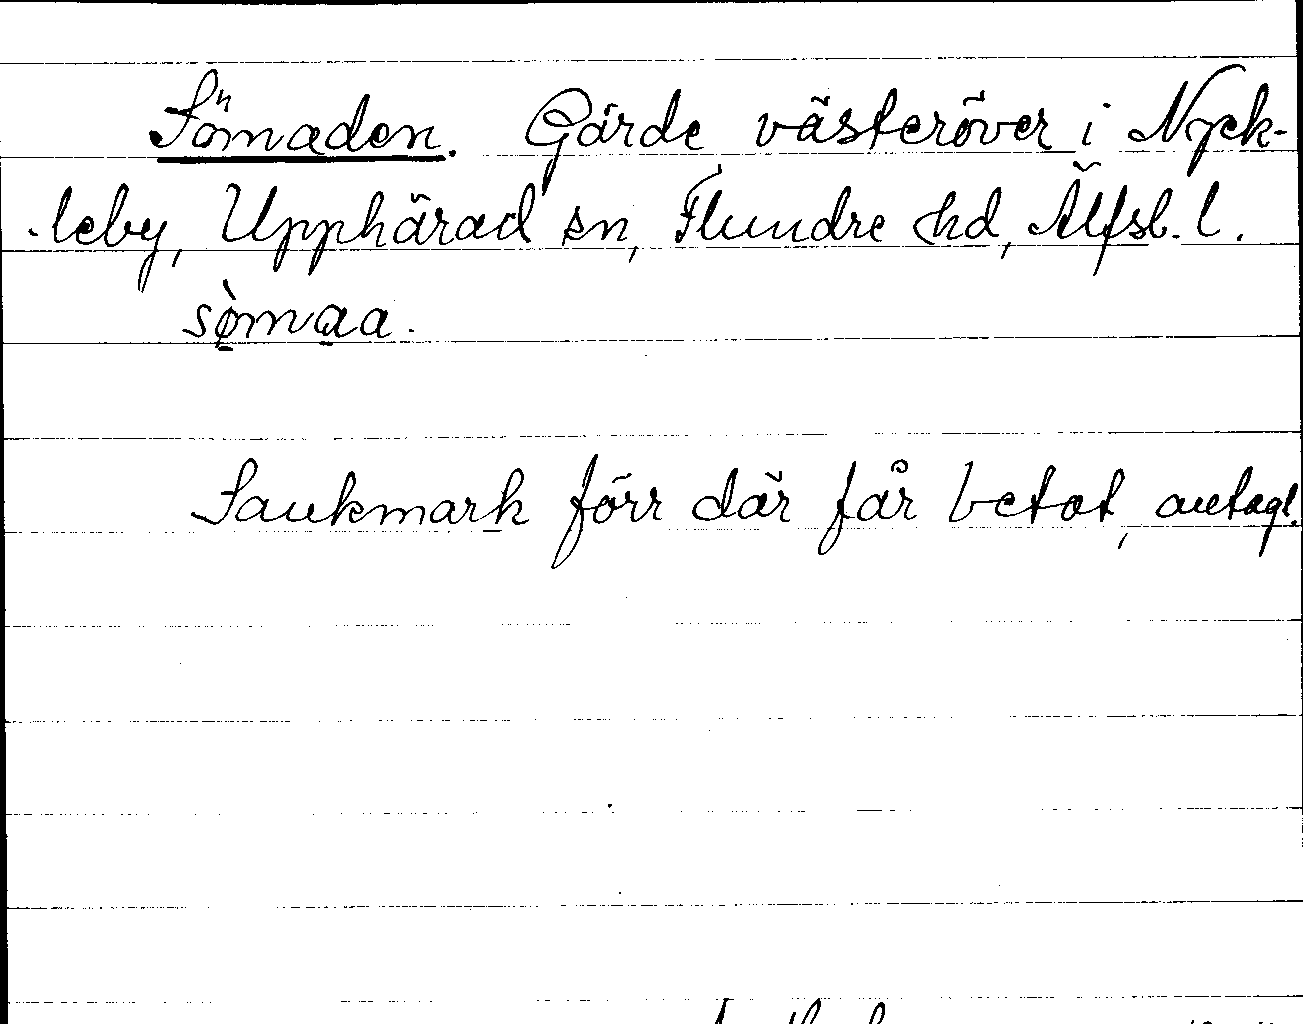 Sömaden. Gärde västeröver i Nyck-
leby, Upphärad sn, Flundre hd, Älfsb. l.
sø̀maa.
Sankmark förr där får betat, antagl.